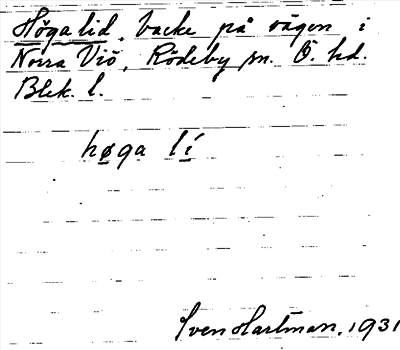 Högalid, backe på vägen i
Norra Viö, Rödeby sn. Ö. hd.
Blek. l.
høga lí
Sven Hartman, 1931